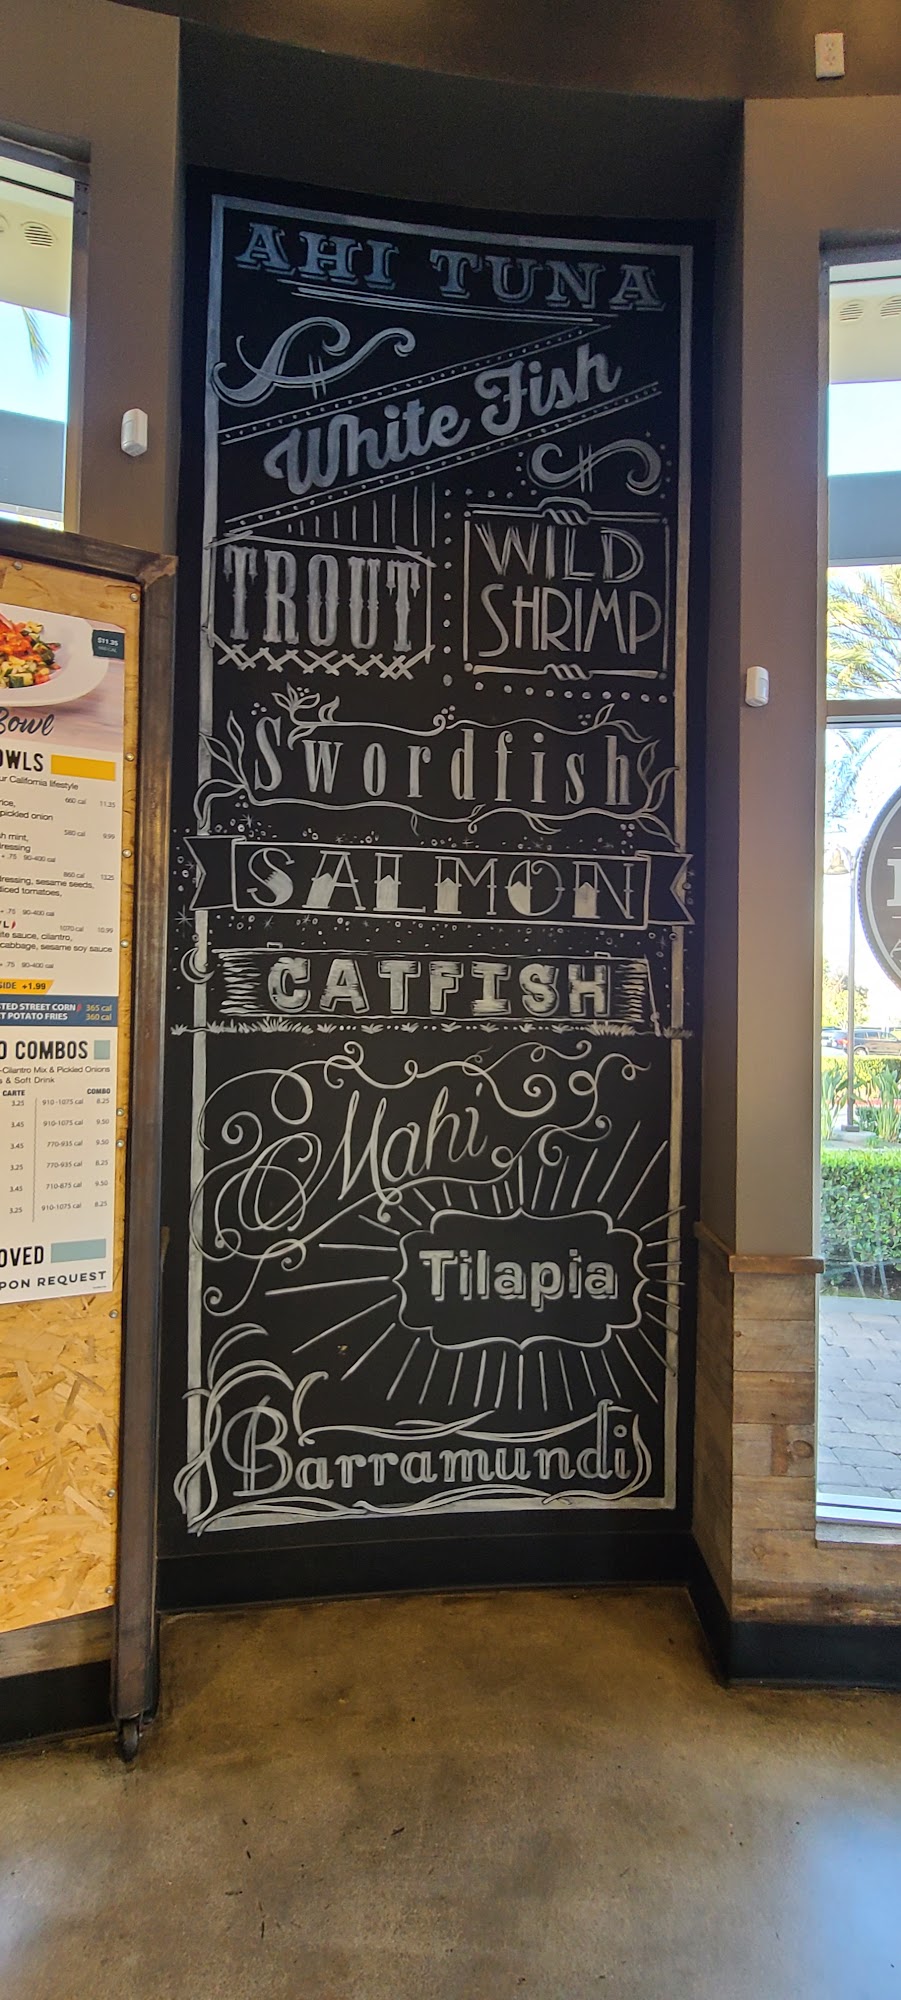 AHI TUNA
White Fish
TROUT
WILD
SHRIMP
Swordfish
SALMON
CATFISH
Mahi
Tilapia
Barramundi
$11.35
Bowl
OWLS
ur California lifestyle
rice, 660 cal 11.35
pickled onion
sh mint, 580 cal 9.99
dressing
+ .75 90-400 cal
860 cal 13.25
dressing, sesame seeds,
diced tomatoes,
+ .75 90-400 cal
1070 cal 10.99
ite sauce, cilantro,
cabbage, sesame soy sauce
+ .75 90-400 cal
SIDE +1.99
STED STREET CORN 365 cal
T POTATO FRIES 360 cal
O COMBOS
-Cilantro Mix & Pickled Onions
s & Soft Drink
CARTE COMBO
3.25 910-1075 cal 8.25
3.45 910-1075 cal 9.50
3.45 770-935 cal 9.50
3.25 770-935 cal 8.25
3.45 710-875 cal 9.50
3.25 910-1075 cal 8.25
OVED
PON REQUEST